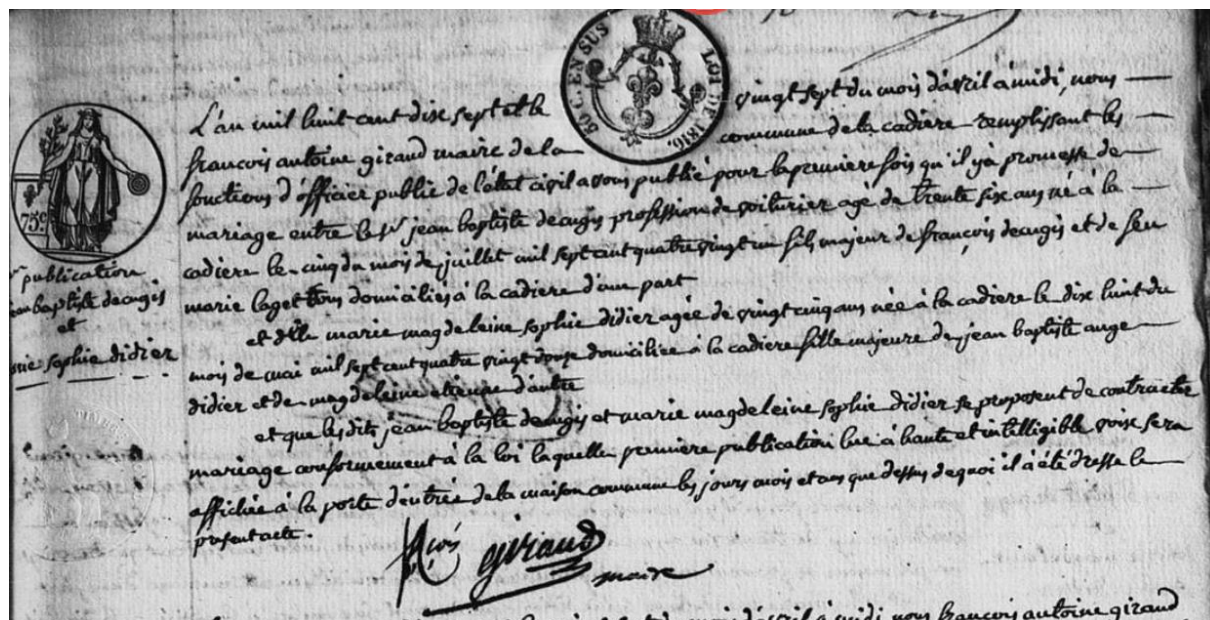 80 C. EN SUS
LOI DE 1816.
75c
L'an mil huit cent dix sept et le vingt sept du mois d'avril a midi, nous
francois antoine giraud maire de la commune de la cadiere remplissant les
fonctions d'officier public de l'état civil avons publié pour la premiere fois qu'il y a promesse de
mariage entre le Sr jean baptiste decugis profession de voiturier agé de trente six ans né à la
cadiere le cinq du mois de juillet mil sept cent quatre vingt un fils majeur de françois decugis et de feu
marie laget tous domiciliés à la cadiere d'une part
et dlle marie magdeleine sophie didier agée de vingt cinq ans née a la cadiere le dix huit du
mois de mai mil sept cent quatre vingt douze domiciliée à la cadiere fille majeure de jean baptiste ange
didier et de magdeleine etienne d'autre
et que lesdits jean baptiste decugis et marie magdeleine sophie didier se proposent de contracter
mariage conformement à la loi laquelle premiere publication lue à haute et intelligible voise sera
affichée à la porte d'entrée de la maison commune les jours mois et an que dessus de quoi il a été dressé le
présent acte.
publication
jean baptiste decugis
et
sophie didier
giraud
maire
mois d'avril à midi nous françois antoine giraud